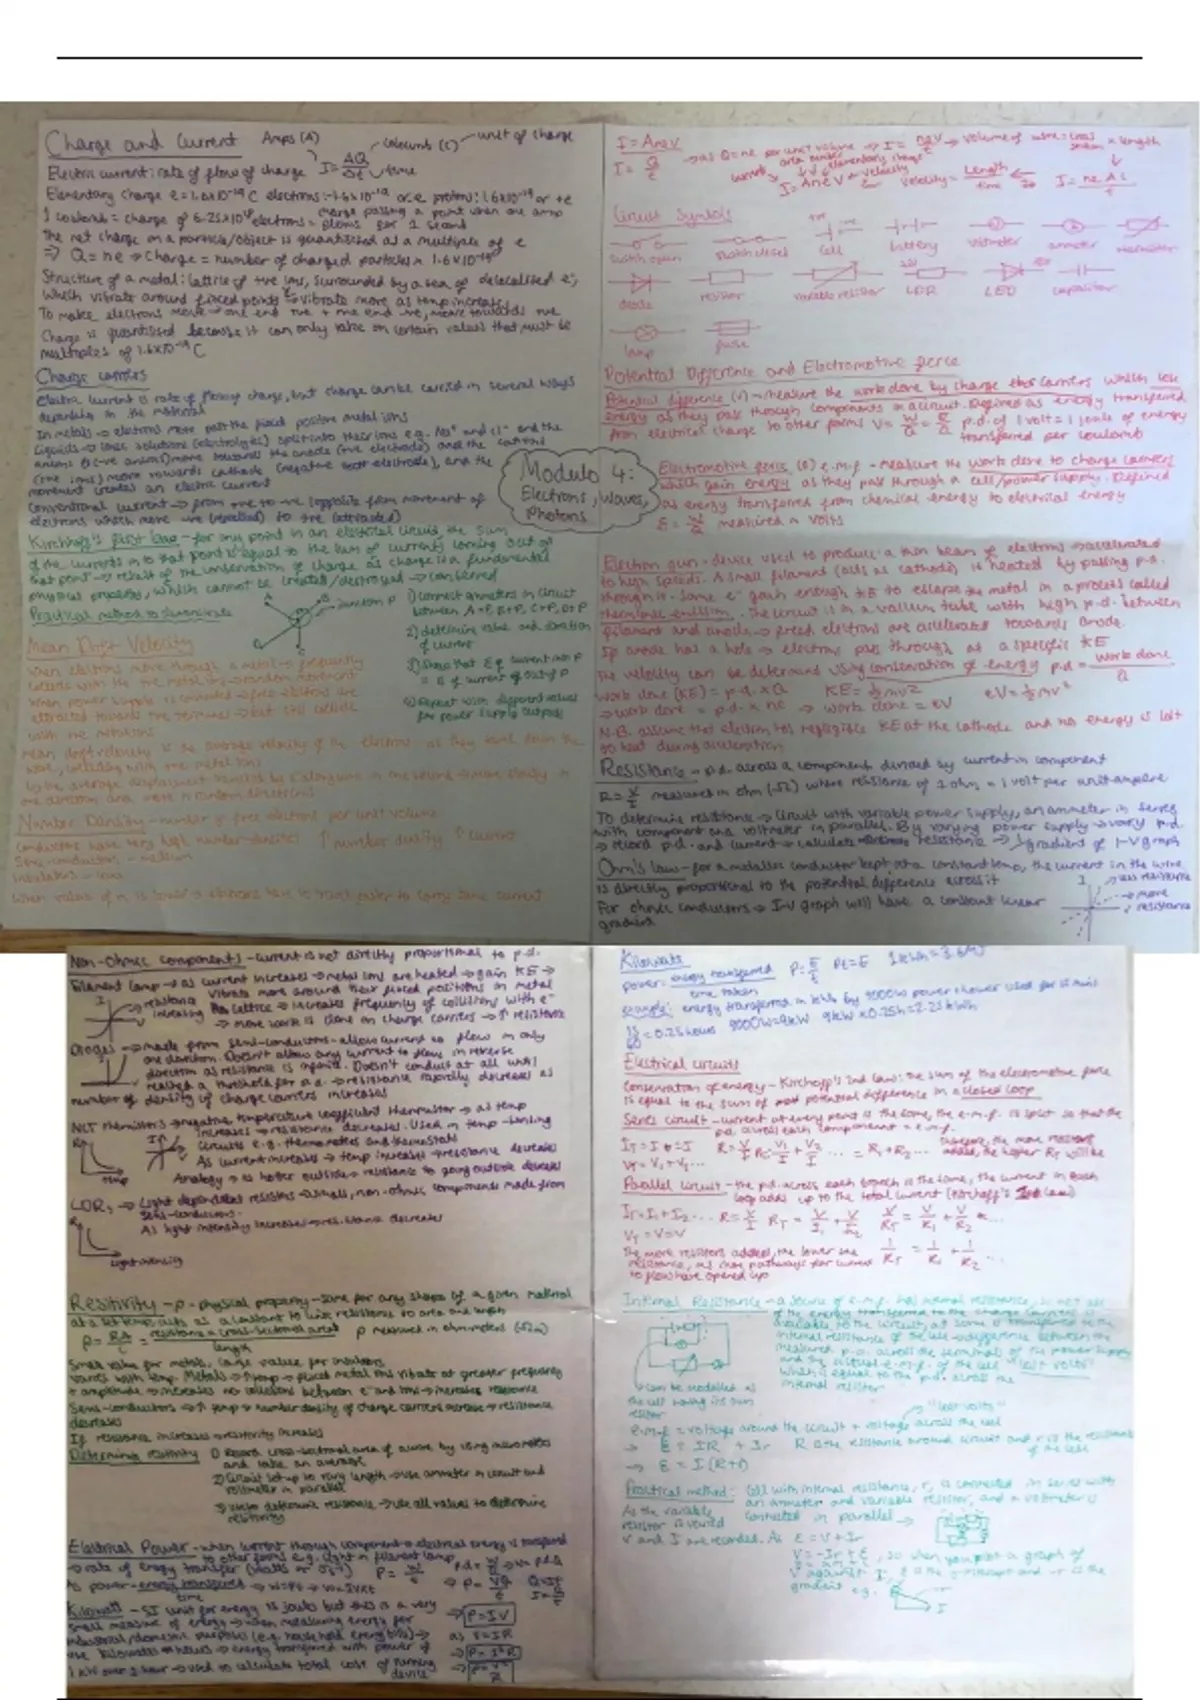 Charge and Current Amps (A) coulomb (C) unit of charge
Electric current: rate of flow of charge I = ΔQ/Δt time
Elementary charge e = 1.6x10⁻¹⁹ C electrons: -1.6x10⁻¹⁹ or -e protons: 1.6x10⁻¹⁹ or +e
1 coulomb = charge of 6.25x10¹⁸ electrons = charge passing a point when one amp flows for 1 second
The net charge on a particle/object is quantised as a multiple of e
⇒ Q = ne → Charge = number of charged particles x 1.6x10⁻¹⁹
Structure of a metal: lattice of +ve ions, surrounded by a sea of delocalised e⁻,
which vibrate around fixed points → vibrate more as temp increases
To make electrons move → one end +ve + one end -ve, move towards +ve
Charge is quantised because it can only take on certain values that must be
multiples of 1.6x10⁻¹⁹ C
Charge carriers
Electric current is rate of flow of charge, but charge can be carried in several ways
depending on the material
In metals → electrons move past the fixed positive metal ions
Liquids → ionic solutions (electrolytes) split into their ions e.g. and Cl⁻ and the
anions move towards the anode (+ve electrode) and the cations
(+ve ions) move towards cathode (negative electrode), and the
movement creates an electric current
Conventional current → from +ve to -ve (opposite from movement of
electrons which move -ve (repelled) to +ve (attracted)
Kirchhoff's first law - for any point in an electrical circuit, the sum
of the currents in to that point is equal to the sum of currents coming out of
that point → result of the conservation of charge as charge is a fundamental
physical property, which cannot be created/destroyed → conserved
Practical method to demonstrate
A B Junction P
C
1) connect ammeters in circuit
between A+P, B+P, C+P, D+P
2) determine value and direction
of current
3) Show that Σ of current into P
= Σ of current out of P
4) Repeat with different values
for power supply outputs
Mean Drift Velocity
When electrons move through a metal → frequently
collide with the +ve metal ions → random movement
When power supply is connected → free electrons are
attracted towards +ve terminal → but still collide
with the metal ions
Mean drift velocity is the average velocity of the electrons as they travel down the
wire, colliding with +ve metal ions
one direction and more in random directions
Number Density - number of free electrons per unit volume
Conductors have very high number densities ↑ number density ↑ current
Semi-conductors - medium
Insulators - low
When value of n is lower → electrons have to travel faster to carry same current
Module 4:
Electrons, Waves,
Photons
I = Anev
I = Q/t → as Q = ne
I = Anev velocity = Length/time
Circuit Symbols
switch open switch closed cell battery voltmeter ammeter thermistor
diode resistor variable resistor LDR LED capacitor
lamp fuse
Potential Difference and Electromotive force
Potential difference (V) - measure the work done by charge carriers which lose
energy as they pass through components in a circuit. Defined as energy transferred
from electrical charge to other forms V = W/Q = E/Q p.d. of 1 volt = 1 joule of energy
transferred per coulomb
Electromotive force (ε) e.m.f - measure the work done to charge carriers
which gain energy as they pass through a cell/power supply. Defined
as energy transferred from chemical energy to electrical energy
ε = W/Q measured in volts
Electron gun - device used to produce a thin beam of electrons → accelerated
to high speeds. A small filament (acts as cathode) is heated by passing p.d.
through it. Some e⁻ gain enough KE to escape the metal in a process called
thermionic emission. The circuit is in a vacuum tube with high p.d. between
filament and anode → freed electrons are accelerated towards anode.
If anode has a hole → electrons pass through at a specific KE
The velocity can be determined using conservation of energy p.d = work done/Q
Work done (KE) = p.d. x Q KE = ½mv² eV = ½mv²
→ work done = p.d. x ne → work done = eV
N.B. assume that electron has negligible KE at the cathode and no energy is lost
to heat during acceleration
Resistance - p.d. across a component divided by current in component
R = V/I measured in ohm (Ω) where resistance of 1 ohm = 1 volt per unit ampere
To determine resistance → circuit with variable power supply, an ammeter in series
with component and voltmeter in parallel. By varying power supply → vary p.d.
→ record p.d. and current → calculate resistance → 1/gradient of I-V graph
Ohm's law - for a metallic conductor kept at a constant temp, the current in the wire
is directly proportional to the potential difference across it
For ohmic conductors → I-V graph will have a constant linear
gradient
I less resistance
more
resistance
Non-Ohmic components - current is not directly proportional to p.d.
Filament lamp → as current increases → metal ions are heated → gain KE →
vibrate more around their fixed positions in metal
lattice → increases frequency of collisions with e⁻
→ more work is done on charge carriers → ↑ resistance
resistance
increasing
Diodes → made from semi-conductors - allow current to flow in only
one direction. Doesn't allow any current to flow in reverse
direction as resistance is infinite. Doesn't conduct at all until
reached a threshold for p.d. → resistance rapidly decreases as
number of density of charge carriers increases
NTC thermistors → negative temperature coefficient thermistor → as temp
increases → resistance decreases. Used in temp-sensing
circuits e.g. thermometers and thermostats
As current increases → temp increases → resistance decreases
Analogy → is hotter outside → resistance to going outside decreases
R temp
LDRs → Light dependent resistors → small, non-ohmic components made from
semi-conductors.
As light intensity increases → resistance decreases
R light intensity
Resitivity - ρ - physical property - same for any shape of a given material
at a set temp, acts as a constant to link resistance to area and length
ρ = RA/L = resistance x cross-sectional area/length ρ measured in ohm-meters (Ωm)
Small value for metals, large value for insulators
Varies with temp. Metals → ↑ temp → fixed metal ions vibrate at greater frequency
+ amplitude → increases no collisions between e⁻ and ions → increases resistance
Semi-conductors → ↑ temp → number density of charge carriers increase → resistance
decreases
If resistance increases → resitivity increases
Determining resitivity 1) Record cross-sectional area of a wire by using micrometer
and take an average
2) Circuit set-up to vary length → use ammeter in circuit and
voltmeter in parallel
3) determine resistance → use all values to determine
resitivity
Electrical Power - when current through component → electrical energy is transferred
to other forms e.g. light in filament lamp
→ rate of energy transfer (Watts or Js⁻¹) P = W/t p.d = W/Q → W = p.d.Q
power = energy transferred/time → W = Pt → W = IVt → P = VQ/t Q = It
Kilowatt - SI unit for energy is joules but this is a very
small measure of energy → when measuring energy for
industrial/domestic purposes (e.g. household energy bills) →
use kilowatt hours → energy transferred with power of
1 kW over 1 hour → used to calculate total cost of running
device
→ P = IV
as V = IR
→ P = I²R
→ P = V²/R
Kilowatts
power = energy transferred/time taken P = E/t Pt = E 1 kWh = 3.6MJ
example: energy transferred in kWh by 9000W power shower used for 15 mins
15/60 = 0.25 hours 9000W = 9kW 9kW x 0.25h = 2.25 kWh
Electrical circuits
Conservation of energy - Kirchoff's 2nd Law: the sum of the electromotive force
is equal to the sum of potential difference in a closed loop
Series circuit - current at every point is the same, the e.m.f. is split so that the
p.d. across each component = e.m.f.
VT = V1 + V2... = R1 + R2... therefore, the more resistors
added, the higher RT will be
Parallel circuit - the p.d. across each branch is the same, the current in each
loop adds up to the total current (Kirchoff's law)
IT = I1 + I2... R = V/I
VT = V = V
The more resistors added, the lower the 1/RT = 1/R1 + 1/R2...
resistance, as more pathways for current
to flow have opened up
Internal Resistance - a source of e.m.f. has internal resistance, is not all
of the energy transferred to the charge carriers is
available to the circuit, as some is transferred to the
internal resistance of the cell → difference between the
measured p.d. across the terminals of the power supply
and the actual e.m.f. of the cell "lost volts"
which is equal to the p.d. across the
internal resistor
can be modelled as
the cell having its own
resistor
"lost volts"
e.m.f = voltage around the circuit + voltage across the cell
→ ε = IR + Ir R is the resistance around circuit and r is the resistance
of the cell
→ ε = I(R+r)
Practical method: Cell with internal resistance, r, is connected in series with
an ammeter and variable resistor, and a voltmeter is
connected in parallel →
As the variable
resistor is varied
V and I are recorded. As ε = V + Ir
V = -Ir + ε, so when you plot a graph of
V against I, ε is the y-intercept and -r is the
gradient e.g. I